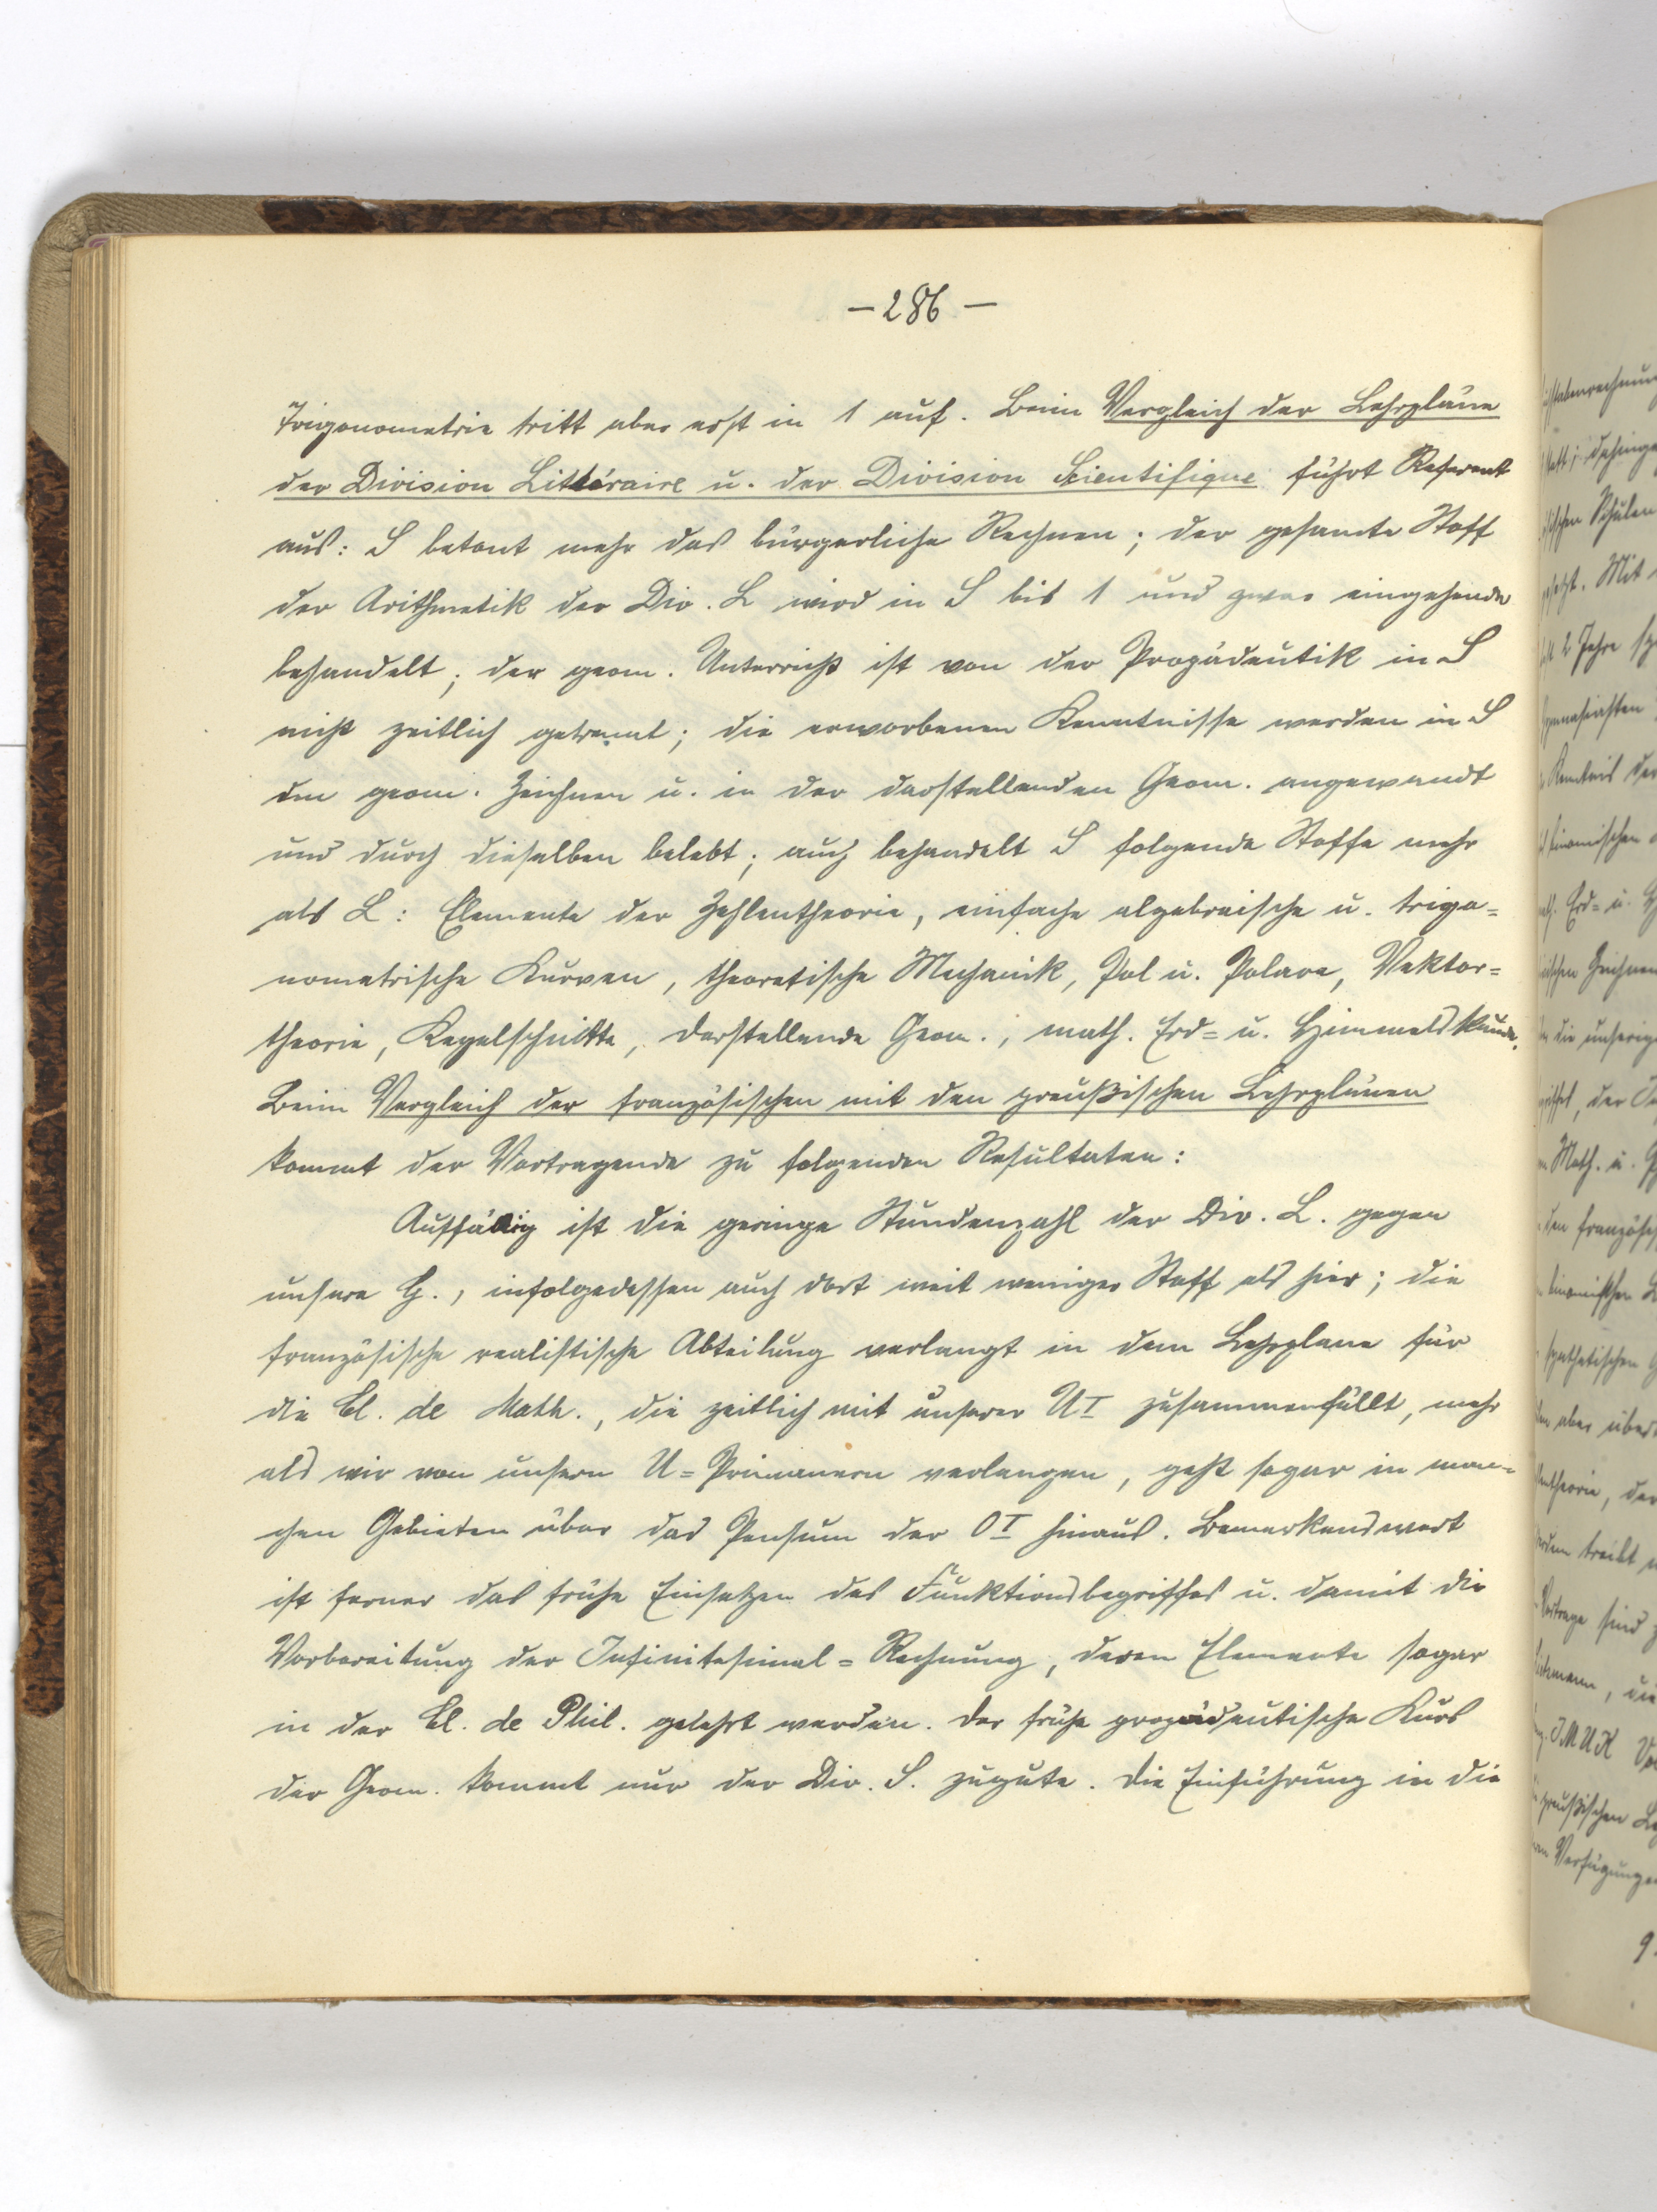 – 286 –
Trigonometrie tritt aber erst in 1 auf. Beim Vergleich der Lehrpläne
der Division Littéraire u. der Division Scientifique führt Referent
aus: S betont mehr das bürgerliche Rechnen; der gesamte Stoff
der Arithmetik der Div. L wird in S bis 1 und zwar eingehender
behandelt; der geom. Unterricht ist von der Propädeutik in S
nicht zeitlich getrennt; die erworbenen Kenntnisse werden in S
im geom. Zeichnen u. in der darstellenden Geom. angewandt
und durch dieselben belebt; auch behandelt S folgende Stoffe mehr
als L: Elemente der Zahlentheorie, einfache algebraische u. trigo=
nometrische Kurven, theoretische Mechanik, Pol u. Polare, Vektor=
theorie, Kegelschnitte, darstellende Geom., math. Erd= u. Himmelskunde.
Beim Vergleich der französischen mit den preußischen Lehrplänen
kommt der Vortragende zu folgenden Resultaten:
Auffällig ist die geringe Stundenzahl der Div. L. gegen
unsere G., infolgedessen auch dort weit weniger Stoff als hier; die
französische realistische Abteilung verlangt in dem Lehrplane für
die Cl. de Math., die zeitlich mit unserer UI zusammenfällt, mehr
als wir von unsern U=Primanern verlangen, geht sogar in man=
chen Gebieten über das Pensum der OI hinaus. Bemerkenswert
ist ferner das frühe Einsetzen des Funktionsbegriffes u. damit die
Vorbereitung der Infinitesimal=Rechnung, deren Elemente sogar
in der Cl. de Phil. gelehrt werden. Der frühe propädeutische Kurs
der Geom. kommt nur der Div. S. zugute. Die Einführung in die